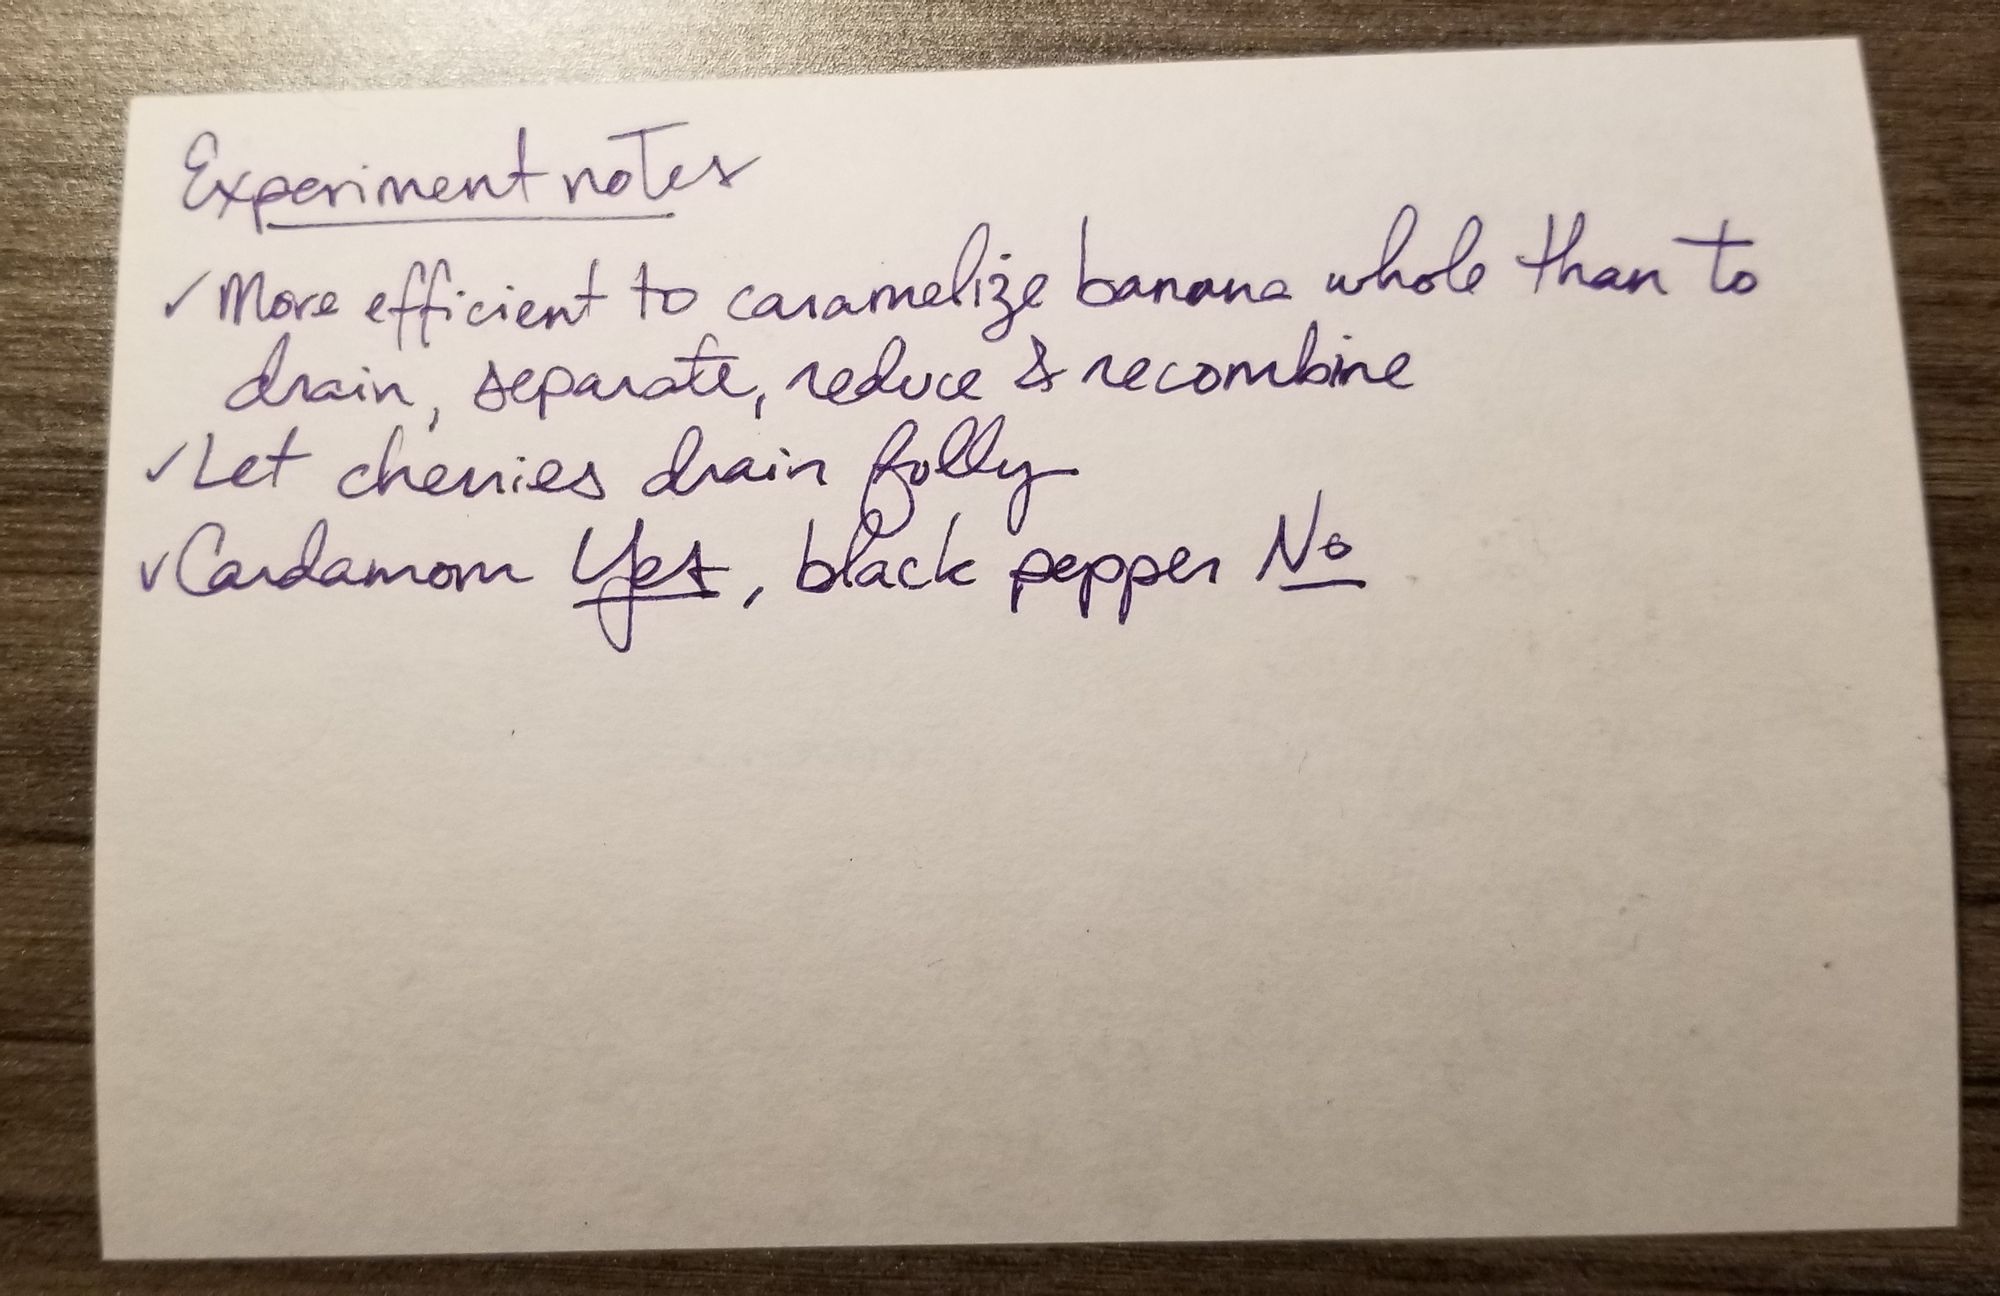 Experiment notes
✓ More efficient to caramelize banana whole than to
drain, separate, reduce & recombine
✓ Let cherries drain fully
✓ Cardamom Yes, black pepper No